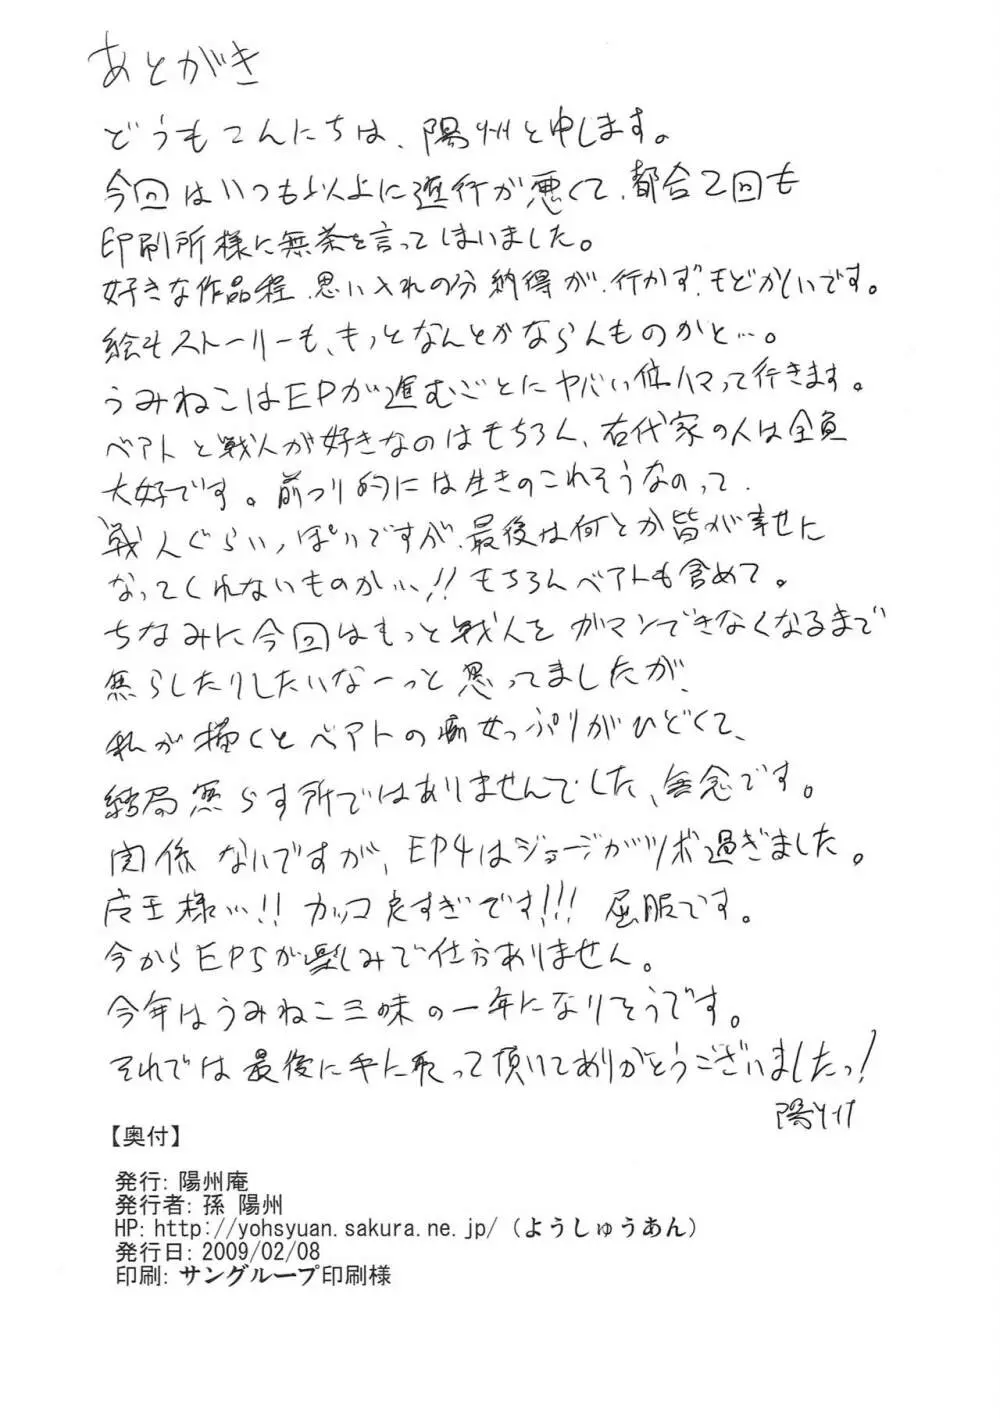 あとがき
どうもこんにちは、陽州と申します。
今回はいつも以上に進行が悪くて、都合2回も
印刷所様に無茶を言ってしまいました。
好きな作品程、思い入れの分納得が行かず、もどかしいです。
絵もストーリーも、もっとなんとかならんものかと…。
うみねこはEPが進むごとにヤバい位ハマって行きます。
ベアトと戦人が好きなのはもちろん、右代宮家の人は全員
大好です。前フリ的には生きのこれそうなのって
戦人ぐらいっぽいですが、最後は何とか皆が幸せに
なってくれないものか…!!もちろんベアトも含めて。
ちなみに今回はもっと戦人をガマンできなくなるまで
焦らしたりしたいなーっと思ってましたが、
私が描くとベアトの痴女っぷりがひどくて、
結局焦らす所ではありませんでした、無念です。
関係ないですが、EP4はジョージがツボ過ぎました。
店主様…!!カッコ良すぎです!!!屈服です。
今からEP5が楽しみで仕方ありません。
今年はうみねこ三昧の一年になりそうです。
それでは最後に手に取って頂いてありがとうございましたっ!
陽州
【奥付】
発行: 陽州庵
発行者: 孫 陽州
HP: http://yohsyuan.sakura.ne.jp/（ようしゅうあん）
発行日: 2009/02/08
印刷: サングループ印刷様